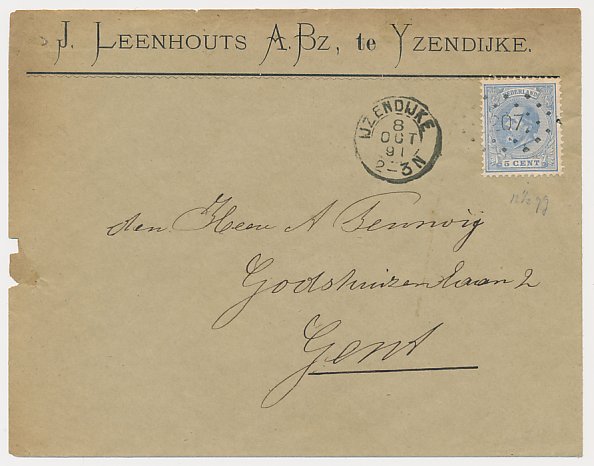 J. LEENHOUTS A.Bz, te YZENDIJKE.
IJZENDIJKE
8
OCT
91
2-3N
NEDERLAND
207
5 CENT
12½ gg
den Heer A Fennvig
Godshuizenlaan 2
Gent